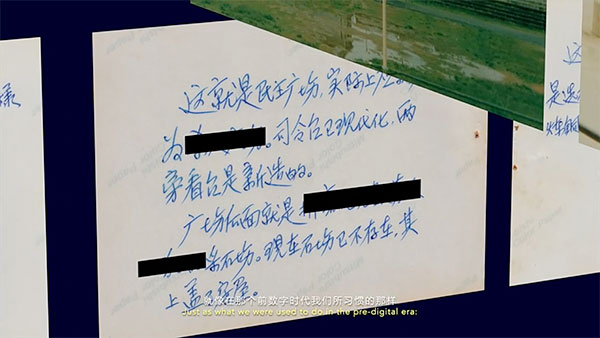 这就是民主广场,实际上应
为 。司令台已现代化,两
旁看台是新造的。
广场后面就是
石场。现在石场已不存在,其
上盖
就像在那个前数字时代我们所习惯的那样
Just as what we were used to do in the pre-digital era:
这
是